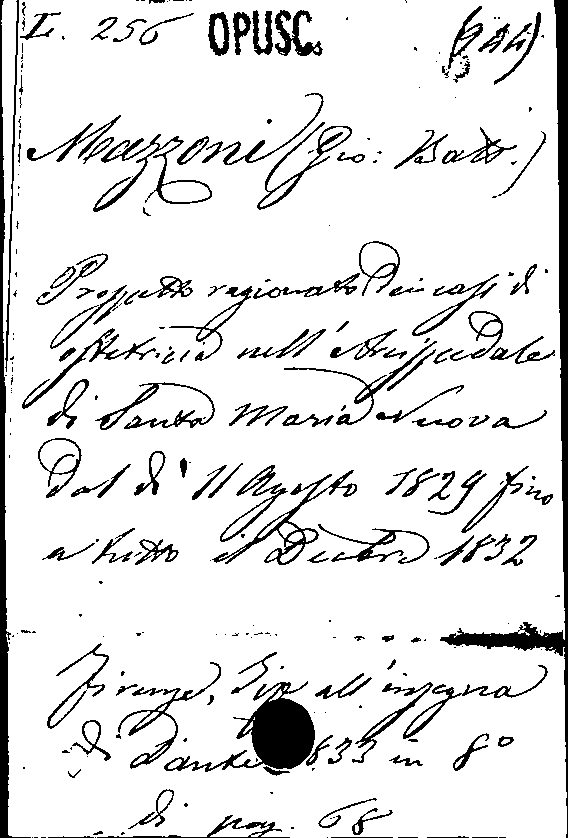 L. 256 OPUSC.
Mazzoni (Gio: Batt.)
Prospetto ragionato Dei casi di
ostetricia nell'Arcispedale
di Santa Maria Nuova
Dal dì 11 Agosto 1829 fino
a tutto il Decebre 1832
Firenze, Tip all'insegna
di Dante 1833 in 8º
di pag. 68